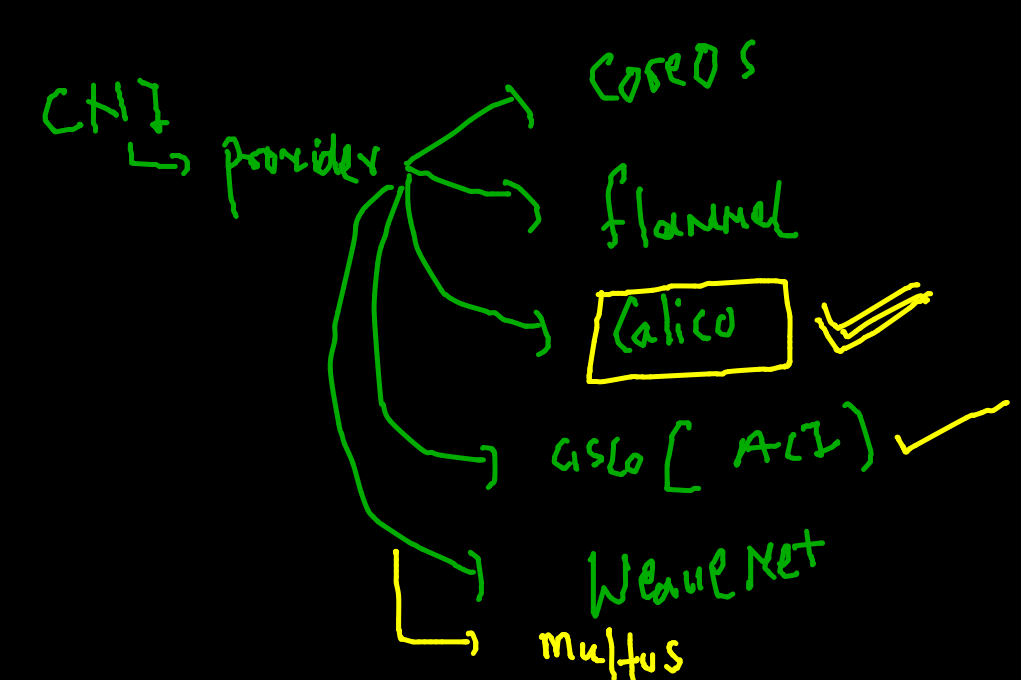 CNI
provider
CoreOs
flannel
Calico
cisco [ ACI )
WeaveNet
multus